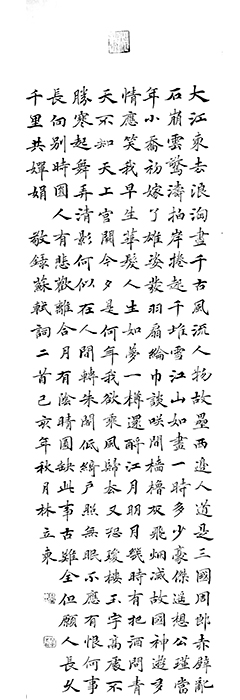 大江東去浪淘盡千古風流人物故壘西邊人道是三國周郎赤壁亂
石崩雲驚濤拍岸捲起千堆雪江山如畫一時多少豪傑遙想公瑾當
年小喬初嫁了雄姿發羽扇綸巾談笑間檣櫓灰飛煙滅故國神遊多
情應笑我早生華髮人生如夢一樽還酹江月明月幾時有把酒問青
天不知天上宮闕今夕是何年我欲乘風歸去又恐瓊樓玉宇高處不
勝寒起舞弄清影何似在人間轉朱閣低綺戶照無眠不應有恨何事
長向別時圓人有悲歡離合月有陰晴圓缺此事古難全但願人長久
千里共嬋娟 敬錄蘇軾詞二首己亥年秋月林立東